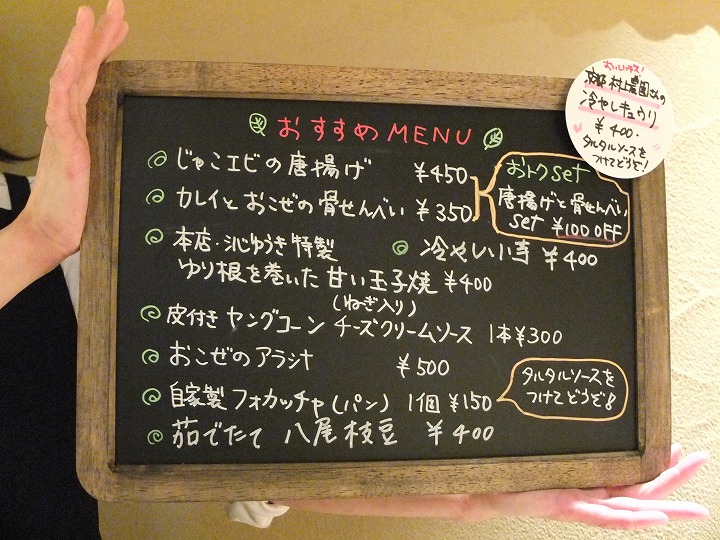 おすすめMENU
じゃこエビの唐揚げ ¥450
カレイとおこぜの骨せんべい ¥350
おトクset
唐揚げと骨せんべい
set ¥100 OFF
本店・沁ゆうき特製
ゆり根を巻いた甘い玉子焼 ¥400
(ねぎ入り)
冷やし ¥400
皮付きヤングコーン チーズクリームソース 1本¥300
おこぜのアラ汁 ¥500
自家製フォカッチャ(パン) 1個 ¥150
タルタルソースを
つけてどうぞ!
茹でたて 八尾枝豆 ¥400
村上農園さんの
冷やしキュウリ
¥400-
タルタルソースを
つけてどうぞ!